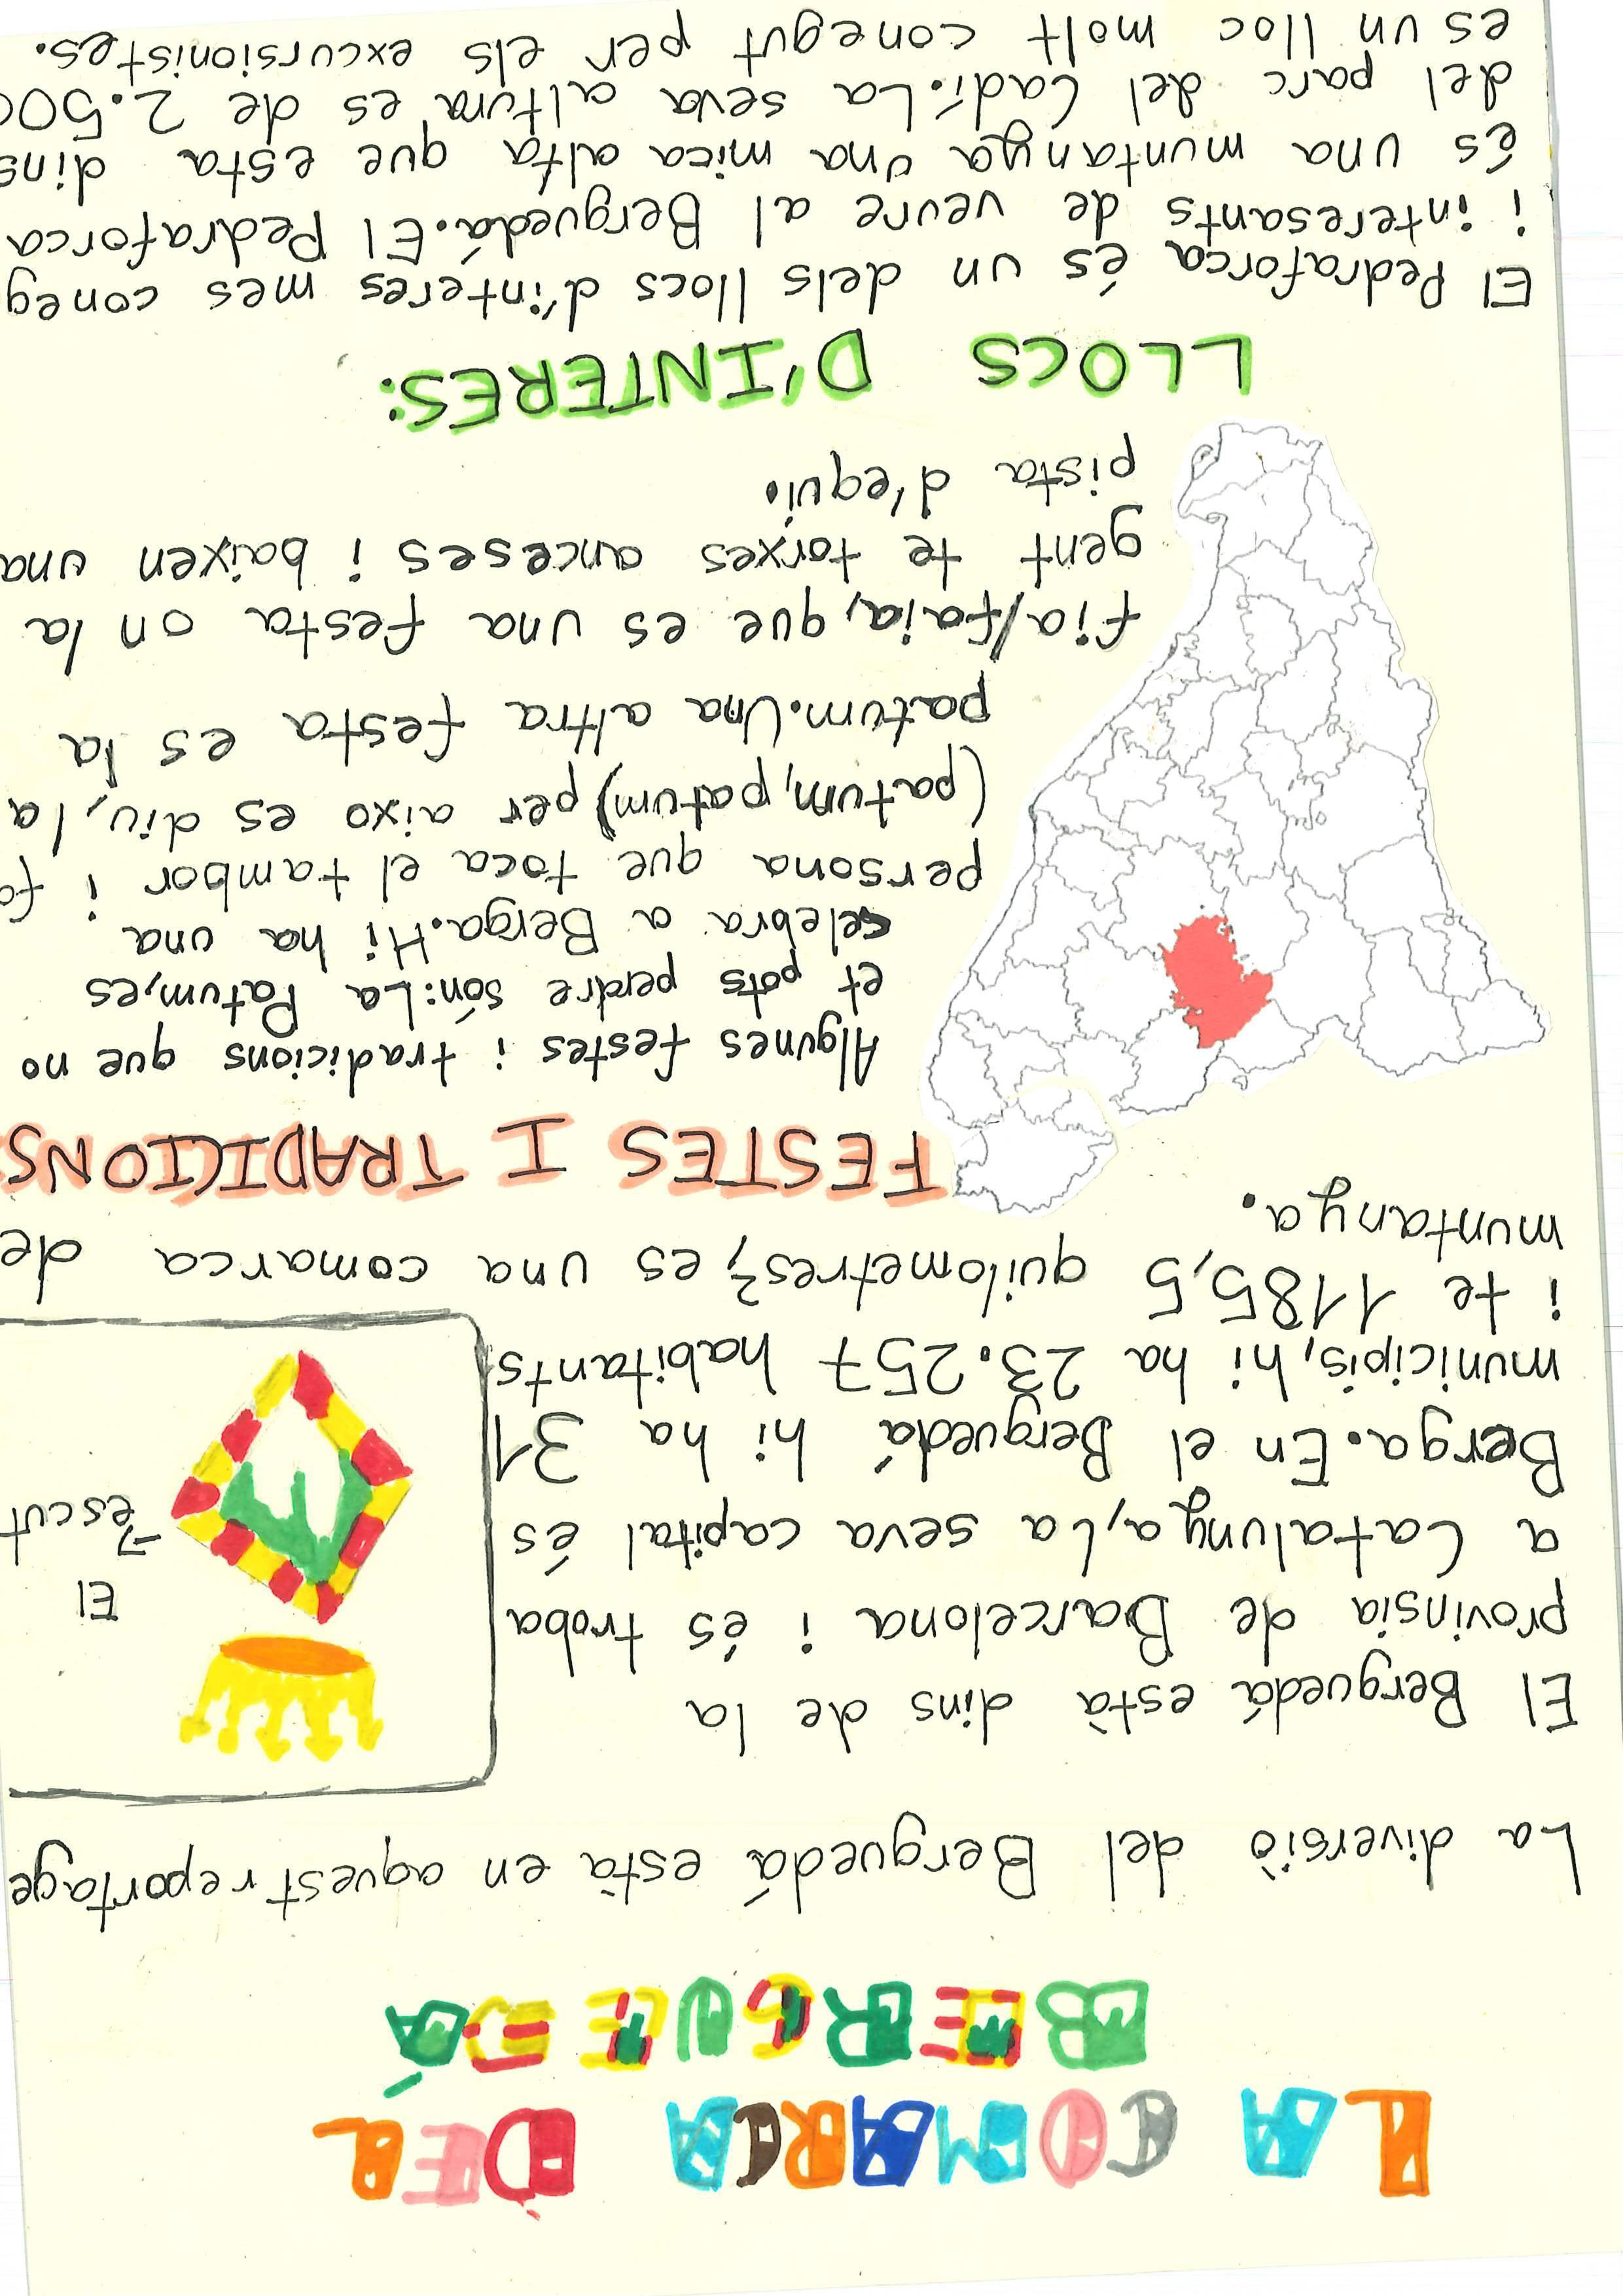 LA COMARCA DEL
BERGUEDÁ
La diversiò del Berguedá està en aquest reportage
El Berguedá està dins de la
provinsia de Barcelona i és troba
a Catalunya, La seva capital és
Berga. En el Berguedá hi ha 31
municipis, hi ha 23.257 habitants
i te 1185,5 quilometres², es una comarca de
muntanya.
El
→escut
FESTES I TRADICIONS
Algunes festes i tradicions que no
et pots perdre són: La Patum, es
selebra a Berga. Hi ha una
persona que toca el tambor i
(patum, patum) per aixo es diu, la
patum. Una altra festa es la
fia/faia, que es una festa on la
gent te torxes anceses i baixen una
pista d'equi.
LLOCS D'INTERES:
El Pedraforca és un dels llocs d'interes mes
i interesants de veure al Berguedá. El Pedraforca
és una muntanya una mica alta que esta dins
del parc del Cadí. La seva altura es de
es un lloc molt conegut per els excursionistes.